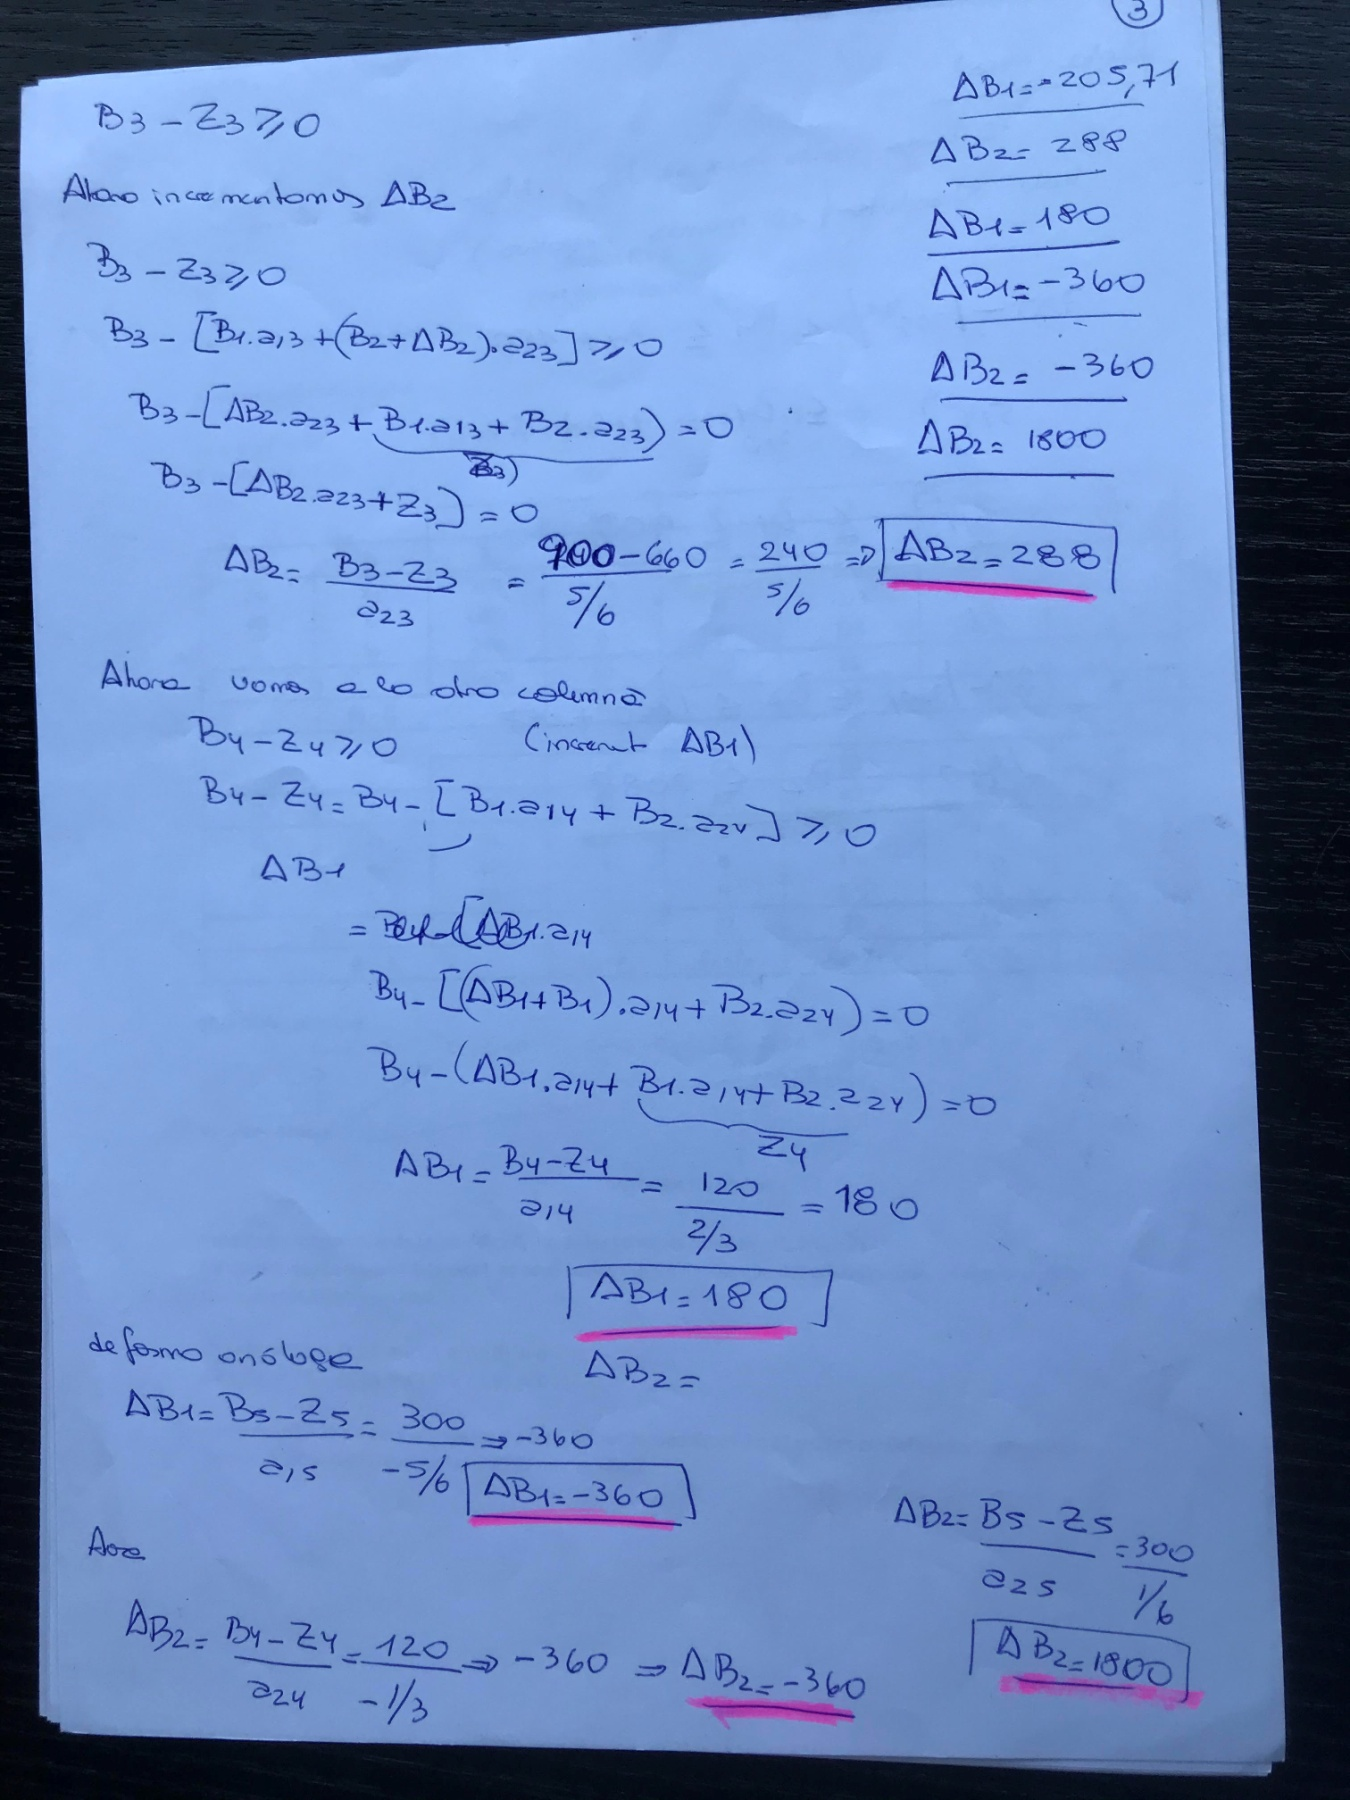 3
ΔB1=-205,71
ΔB2= 288
ΔB1=180
ΔB1=-360
ΔB2= -360
ΔB2= 1800
B3-Z3≥0
incrementamos ΔB2
B3-Z3≥0
B3-[B1.a13+(B2+ΔB2).a23]≥0
B3-[ΔB2.a23+B1.a13+B2.a23)=0
Z3)
B3-[ΔB2.a23+Z3)=0
ΔB2= B3-Z3/a23 = 900-660/5/6 = 240/5/6 => ΔB2=288
Ahora vamos a la otra columna
B4-Z4≥0 (increment ΔB1)
B4-Z4=B4-[B1.a14+B2.a24]≥0
ΔB1
= ΔB1.a14
B4-[(ΔB1+B1).a14+B2.a24)=0
B4-(ΔB1.a14+B1.a14+B2.a24)=0
Z4
ΔB1= B4-Z4/a14 = 120/2/3 = 180
ΔB1=180
de forma análoga
ΔB2=
ΔB1= B5-Z5/a15 = 300/-5/6 => -360
ΔB1=-360
ΔB2= B5-Z5/a25 = 300/1/6
ΔB2=1800
ΔB2= B4-Z4/a24 = 120/-1/3 => -360 => ΔB2=-360